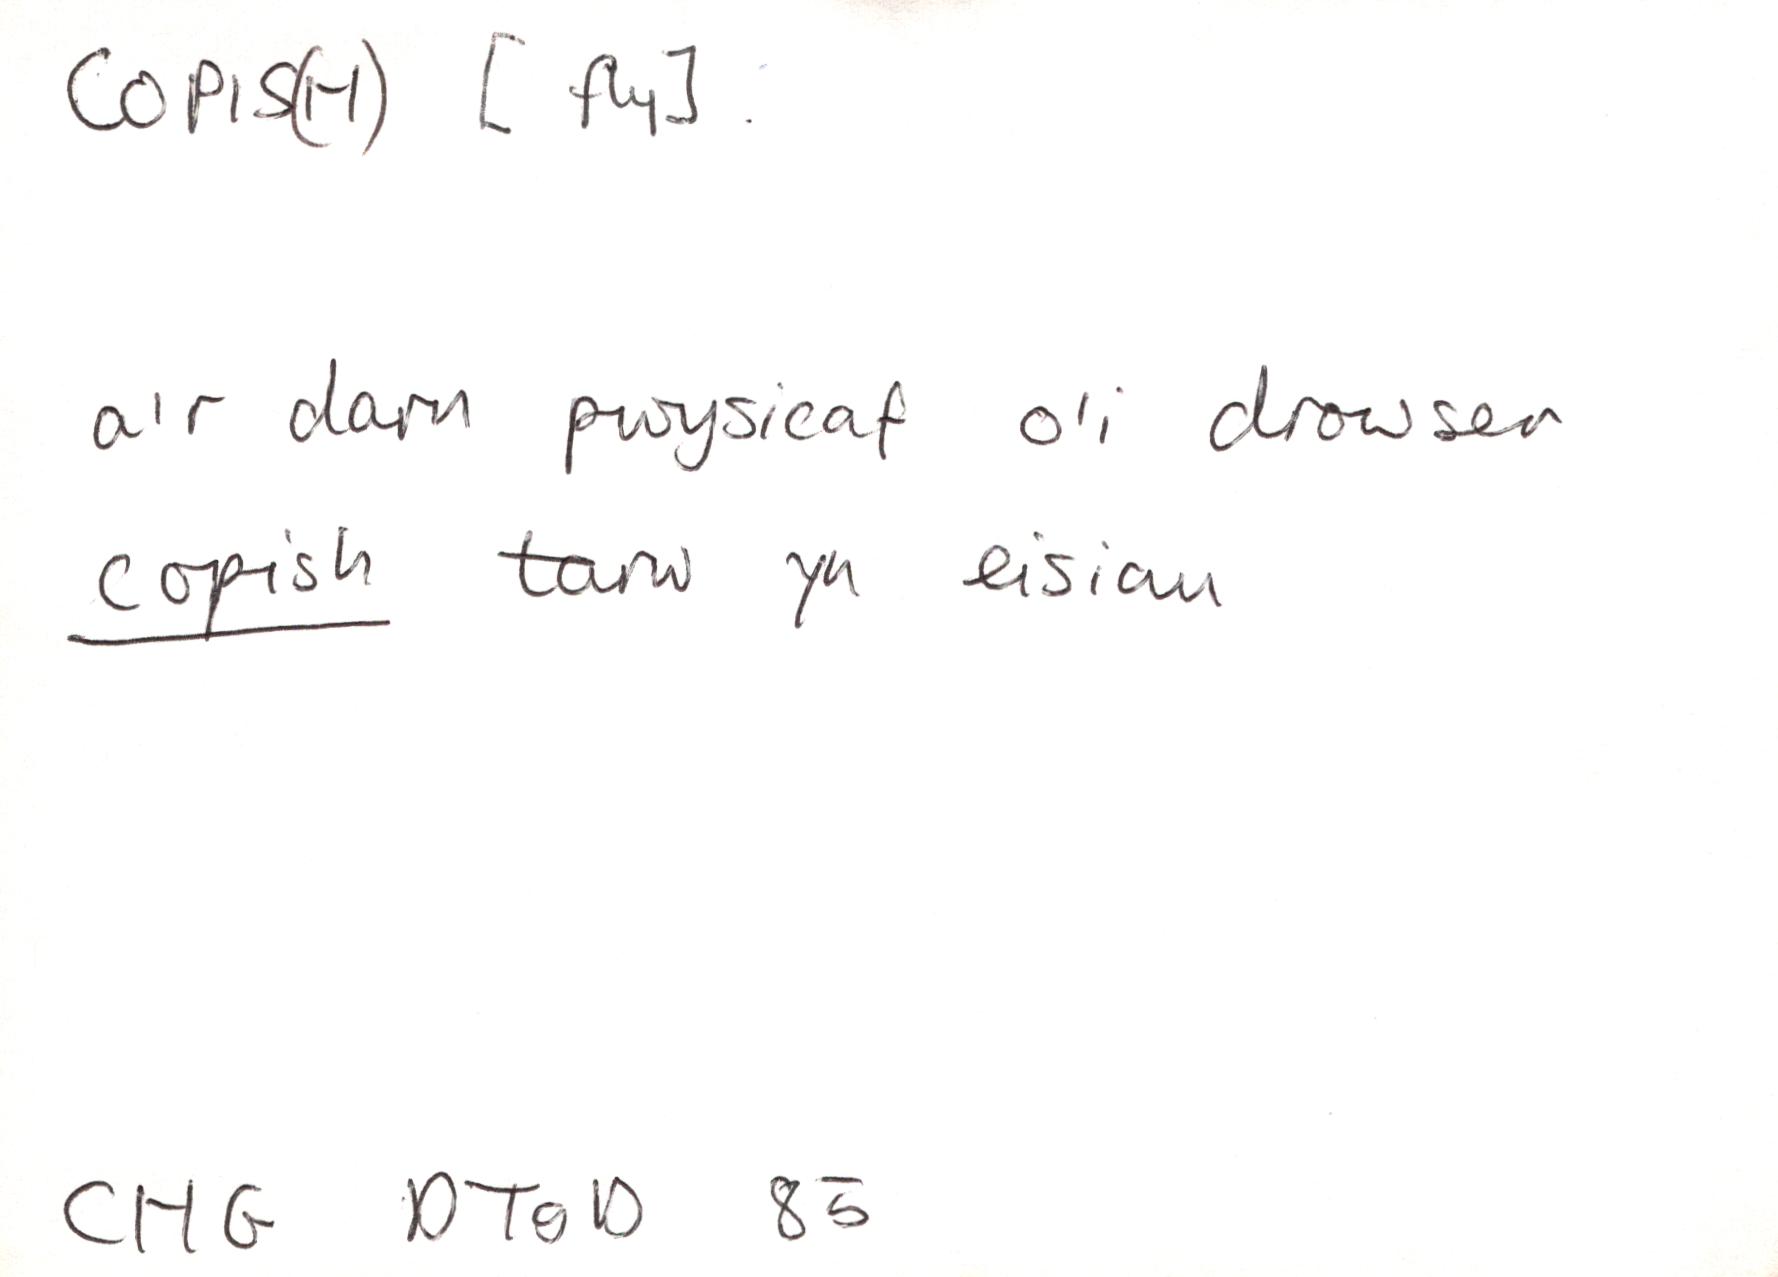 COPIS(H) [fly].
a'r darn pwysicaf o'i drowser
copish tarw yn eisiau
CHG DToD 85